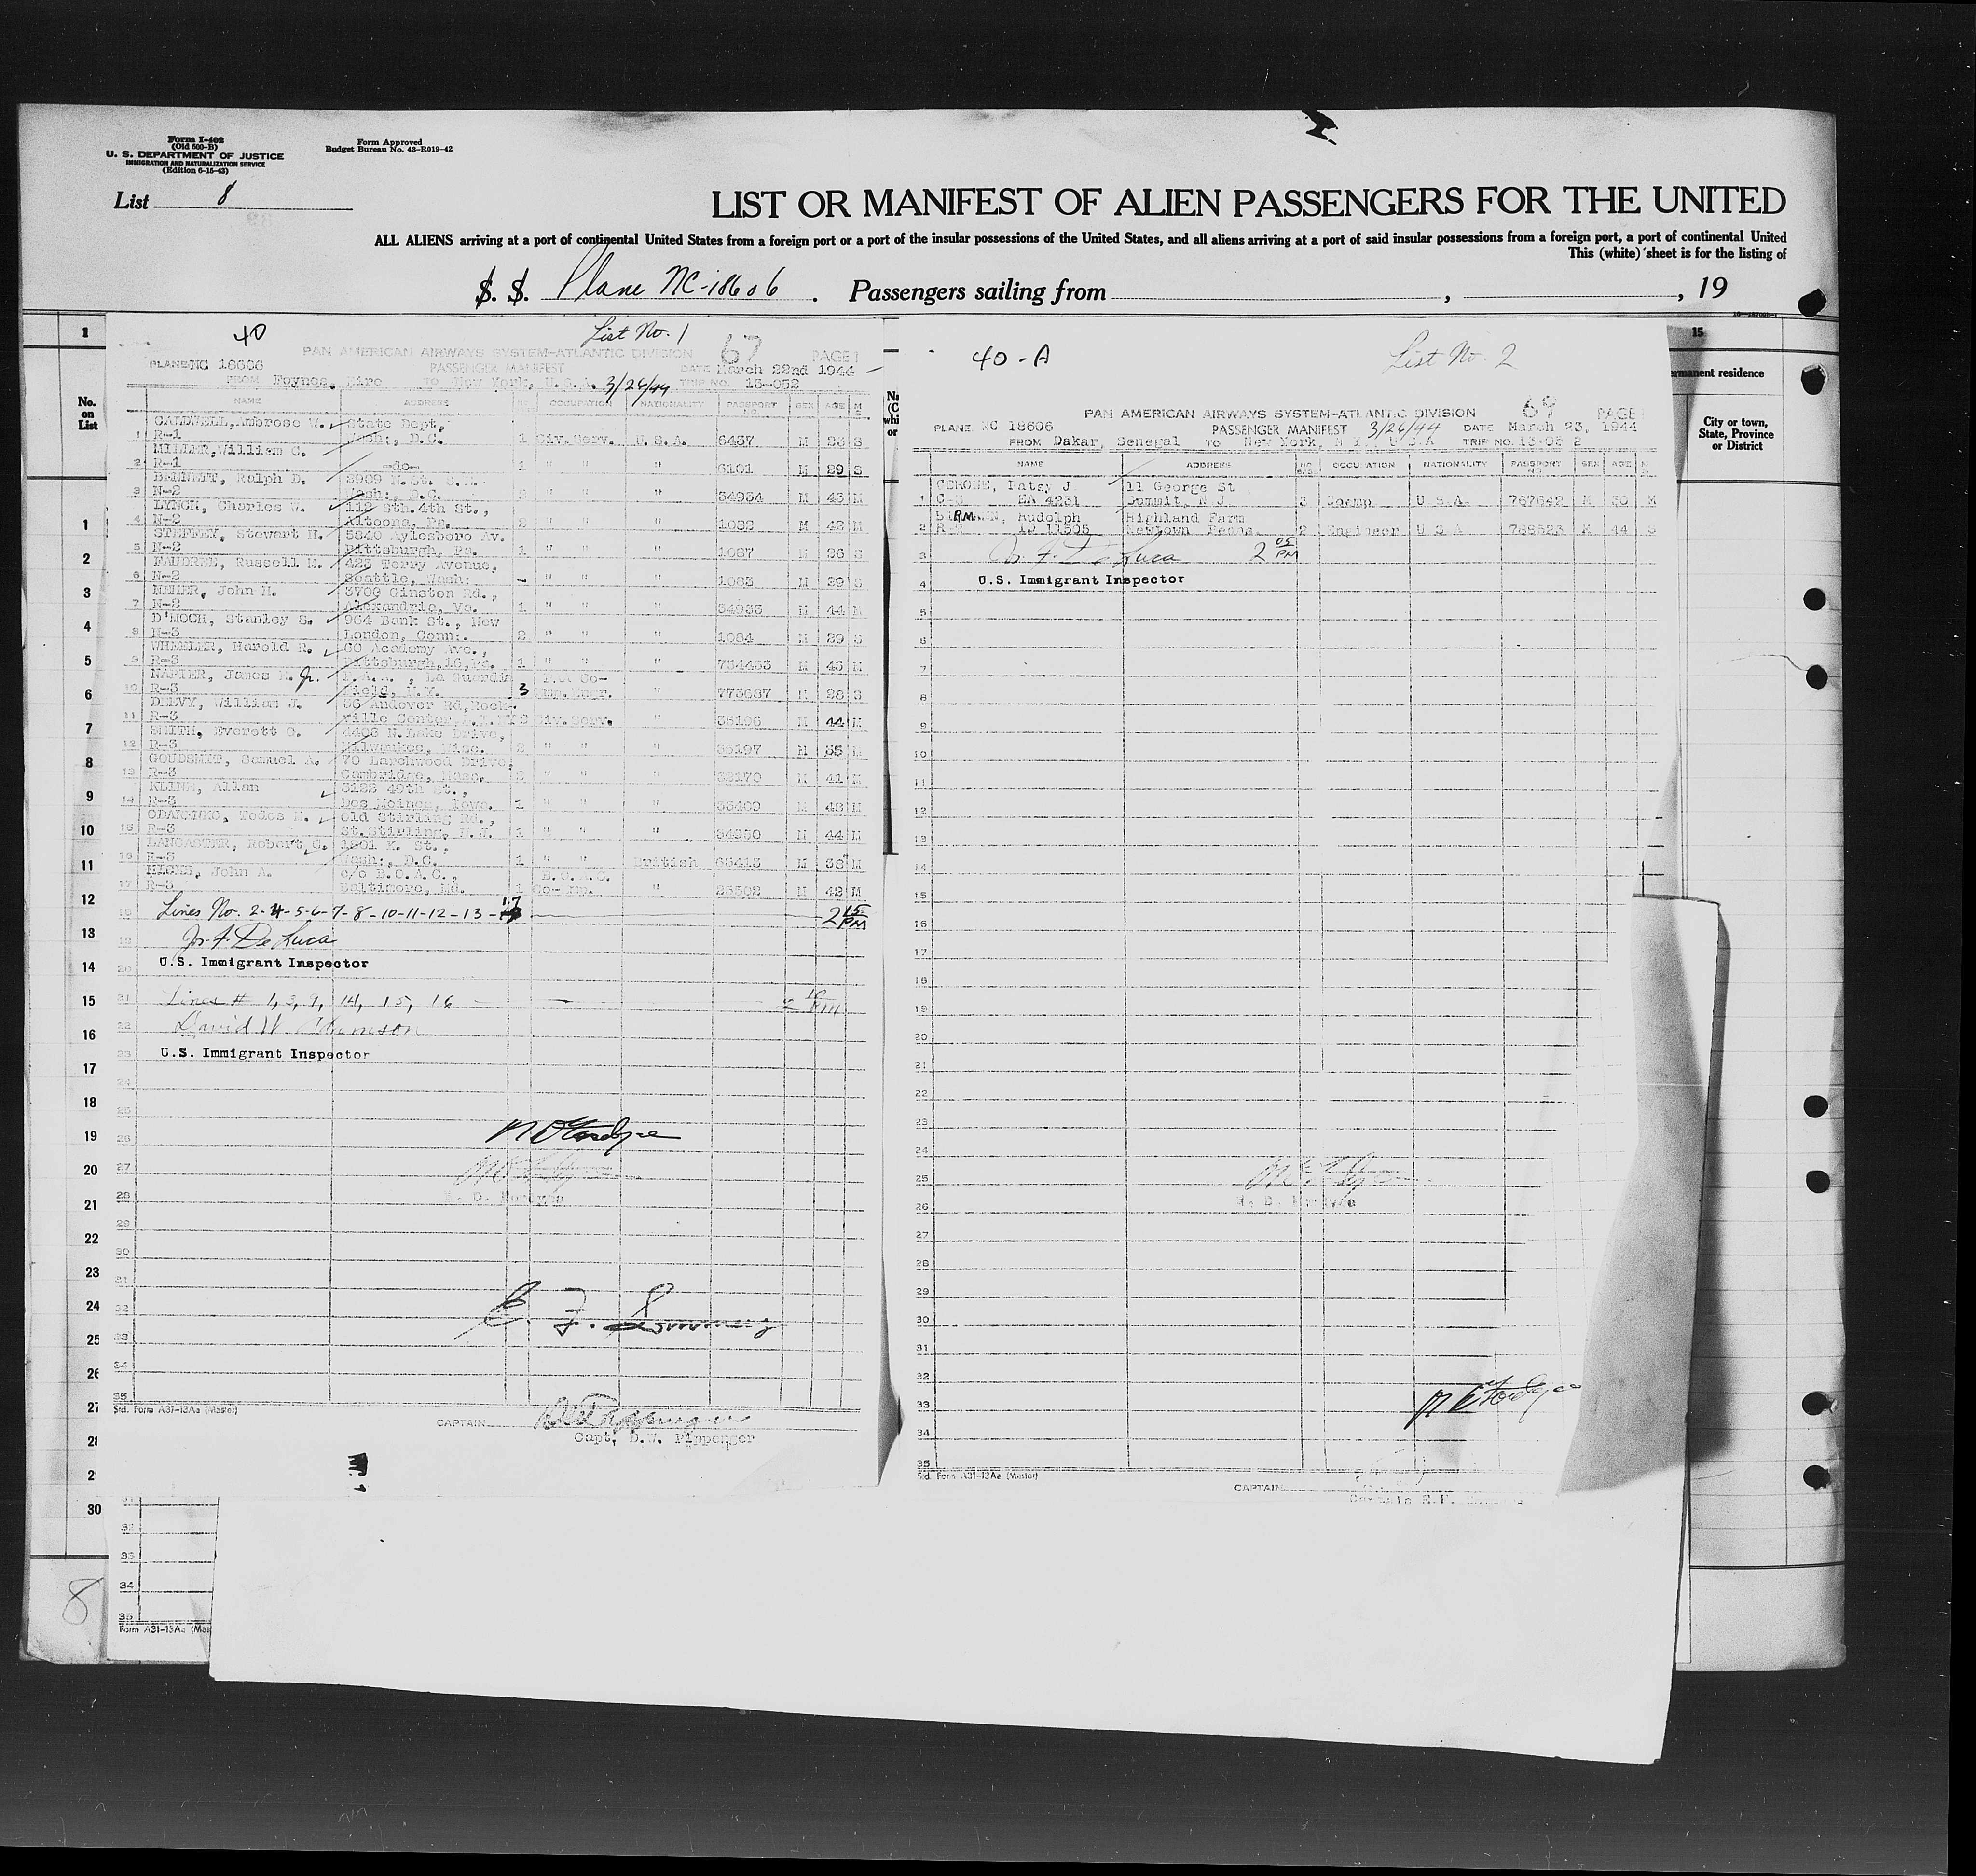 Form I-402
(Old 500-B)
U. S. DEPARTMENT OF JUSTICE
IMMIGRATION AND NATURALIZATION SERVICE
(Edition 6-15-43)
Form Approved
Budget Bureau No. 43-R019-42
List 8
LIST OR MANIFEST OF ALIEN PASSENGERS FOR THE UNITED
ALL ALIENS arriving at a port of continental United States from a foreign port or a port of the insular possessions of the United States, and all aliens arriving at a port of said insular possessions from a foreign port, a port of continental United
This (white) sheet is for the listing of
S. S. Plane NC-18606 . Passengers sailing from , , 19
40 List No. 1
PAN AMERICAN AIRWAYS SYSTEM-ATLANTIC DIVISION 67 PAGE 1
PLANE NC 18606 PASSENGER MANIFEST DATE March 22nd 1944
FROM Foynes, Eire TO New York, U.S.A. 3/26/44 TRIP NO. 13-052
NAME ADDRESS OCCUPATION NATIONALITY PASSPORT NO. SEX AGE M S
CALDWELL, Ambrose W. State Dept,
1 R-1 Wash:, D.C. 1 Civ. Serv. U.S.A. 6437 M 23 S
MILLER, William C.
2 R-1 -do- 1 " " " 6101 M 29 S
BENNETT, Ralph D.
3 N-2 Wash:, D.C. " " " 34934 M 43 M
LYNCH, Charles W. 112 Sth. 4th St.,
4 N-2 Altoona, Pa. 2 " " " 1082 M 42 M
STEFFEY, Stewart H. 5840 Aylesboro Av.
5 N-2 Pittsburgh, Pa. 1 " " " 1087 M 26 S
FAUDREE, Russell M. 423 Terry Avenue,
6 N-2 Seattle, Wash: - " " " 1083 M 39 S
NEHER, John H. 3709 Ginston Rd.,
7 N-2 Alexandria, Va. 1 " " " 34933 M 44 M
D'MOCH, Stanley S. 964 Bank St., New
8 N-3 London, Conn:. 2 " " " 1084 M 29 S
WHEELER, Harold R. 60 Academy Ave.,
9 R-3 Pittsburgh, 16, Pa. 1 " " " 734433 M 45 M
NAPIER, James E. Jr. P.A.A. , La Guardia
10 R-3 Field, N.Y. 3 " 773687 M 28 S
DEEVY, William J. 36 Andover Rd, Rock-
11 R-3 ville Center, L.I. NY 2 Civ. Serv. " 35196 M 44 M
SMITH, Everett O. 4408 N. Lake Drive,
12 R-3 Milwaukee, Wisc. 2 " " " 35197 M 35 M
GOUDSMIT, Samuel A. 70 Larchwood Drive,
13 R-3 Cambridge, Mass. 2 " " " 32170 M 41 M
KLINE, Allan 3123 49th St.,
14 R-3 Des Moines, Iowa. 1 " " " 35409 M 48 M
Old Stirling Rd.,
15 R-3 St. Stirling, N.J. 1 " " " 34930 M 44 M
LANCASTER, Robert G. 1801 K. St.,
16 R-3 Wash:, D.C. 1 " " British 63413 M 38 M
John A. c/o B.O.A.C., B.O.A.C.
17 R-3 Baltimore, Md. 1 Co-Emp. " 25502 M 42 M
Lines No. 2-4-5-6-7-8-10-11-12-13-17 2 15 PM
Jos. F. De Luca
U.S. Immigrant Inspector
Lines # 1, 3, 9, 14, 15, 16
U.S. Immigrant Inspector
Std. Form A31-13Aa (Master)
CAPTAIN
Capt, D.W. Pippenger
40-A List No. 2
PAN AMERICAN AIRWAYS SYSTEM-ATLANTIC DIVISION 69 PAGE
PLANE NC 18606 PASSENGER MANIFEST 3/26/44 DATE March 23, 1944
FROM Dakar, Senegal TO New York, N Y, U S A TRIP NO. 13-05 2
NAME ADDRESS OCCUPATION NATIONALITY PASSPORT NO. SEX AGE
CERONE, Patsy J 11 George St
1 EA 4231 Summit, N J 3 Coemp U S A. 767642 M 30 M
Rudolph Highland Farm
2 ID 11505 Newtown Penna 2 Engineer U S A 788823 M 44 S
Jos. F. De Luca 2 05 PM
U.S. Immigrant Inspector
Std. Form A31-13Aa (Master)
CAPTAIN
Form A31-13Aa (Mas
No. on List
15
permanent residence
City or town, State, Province or District
8